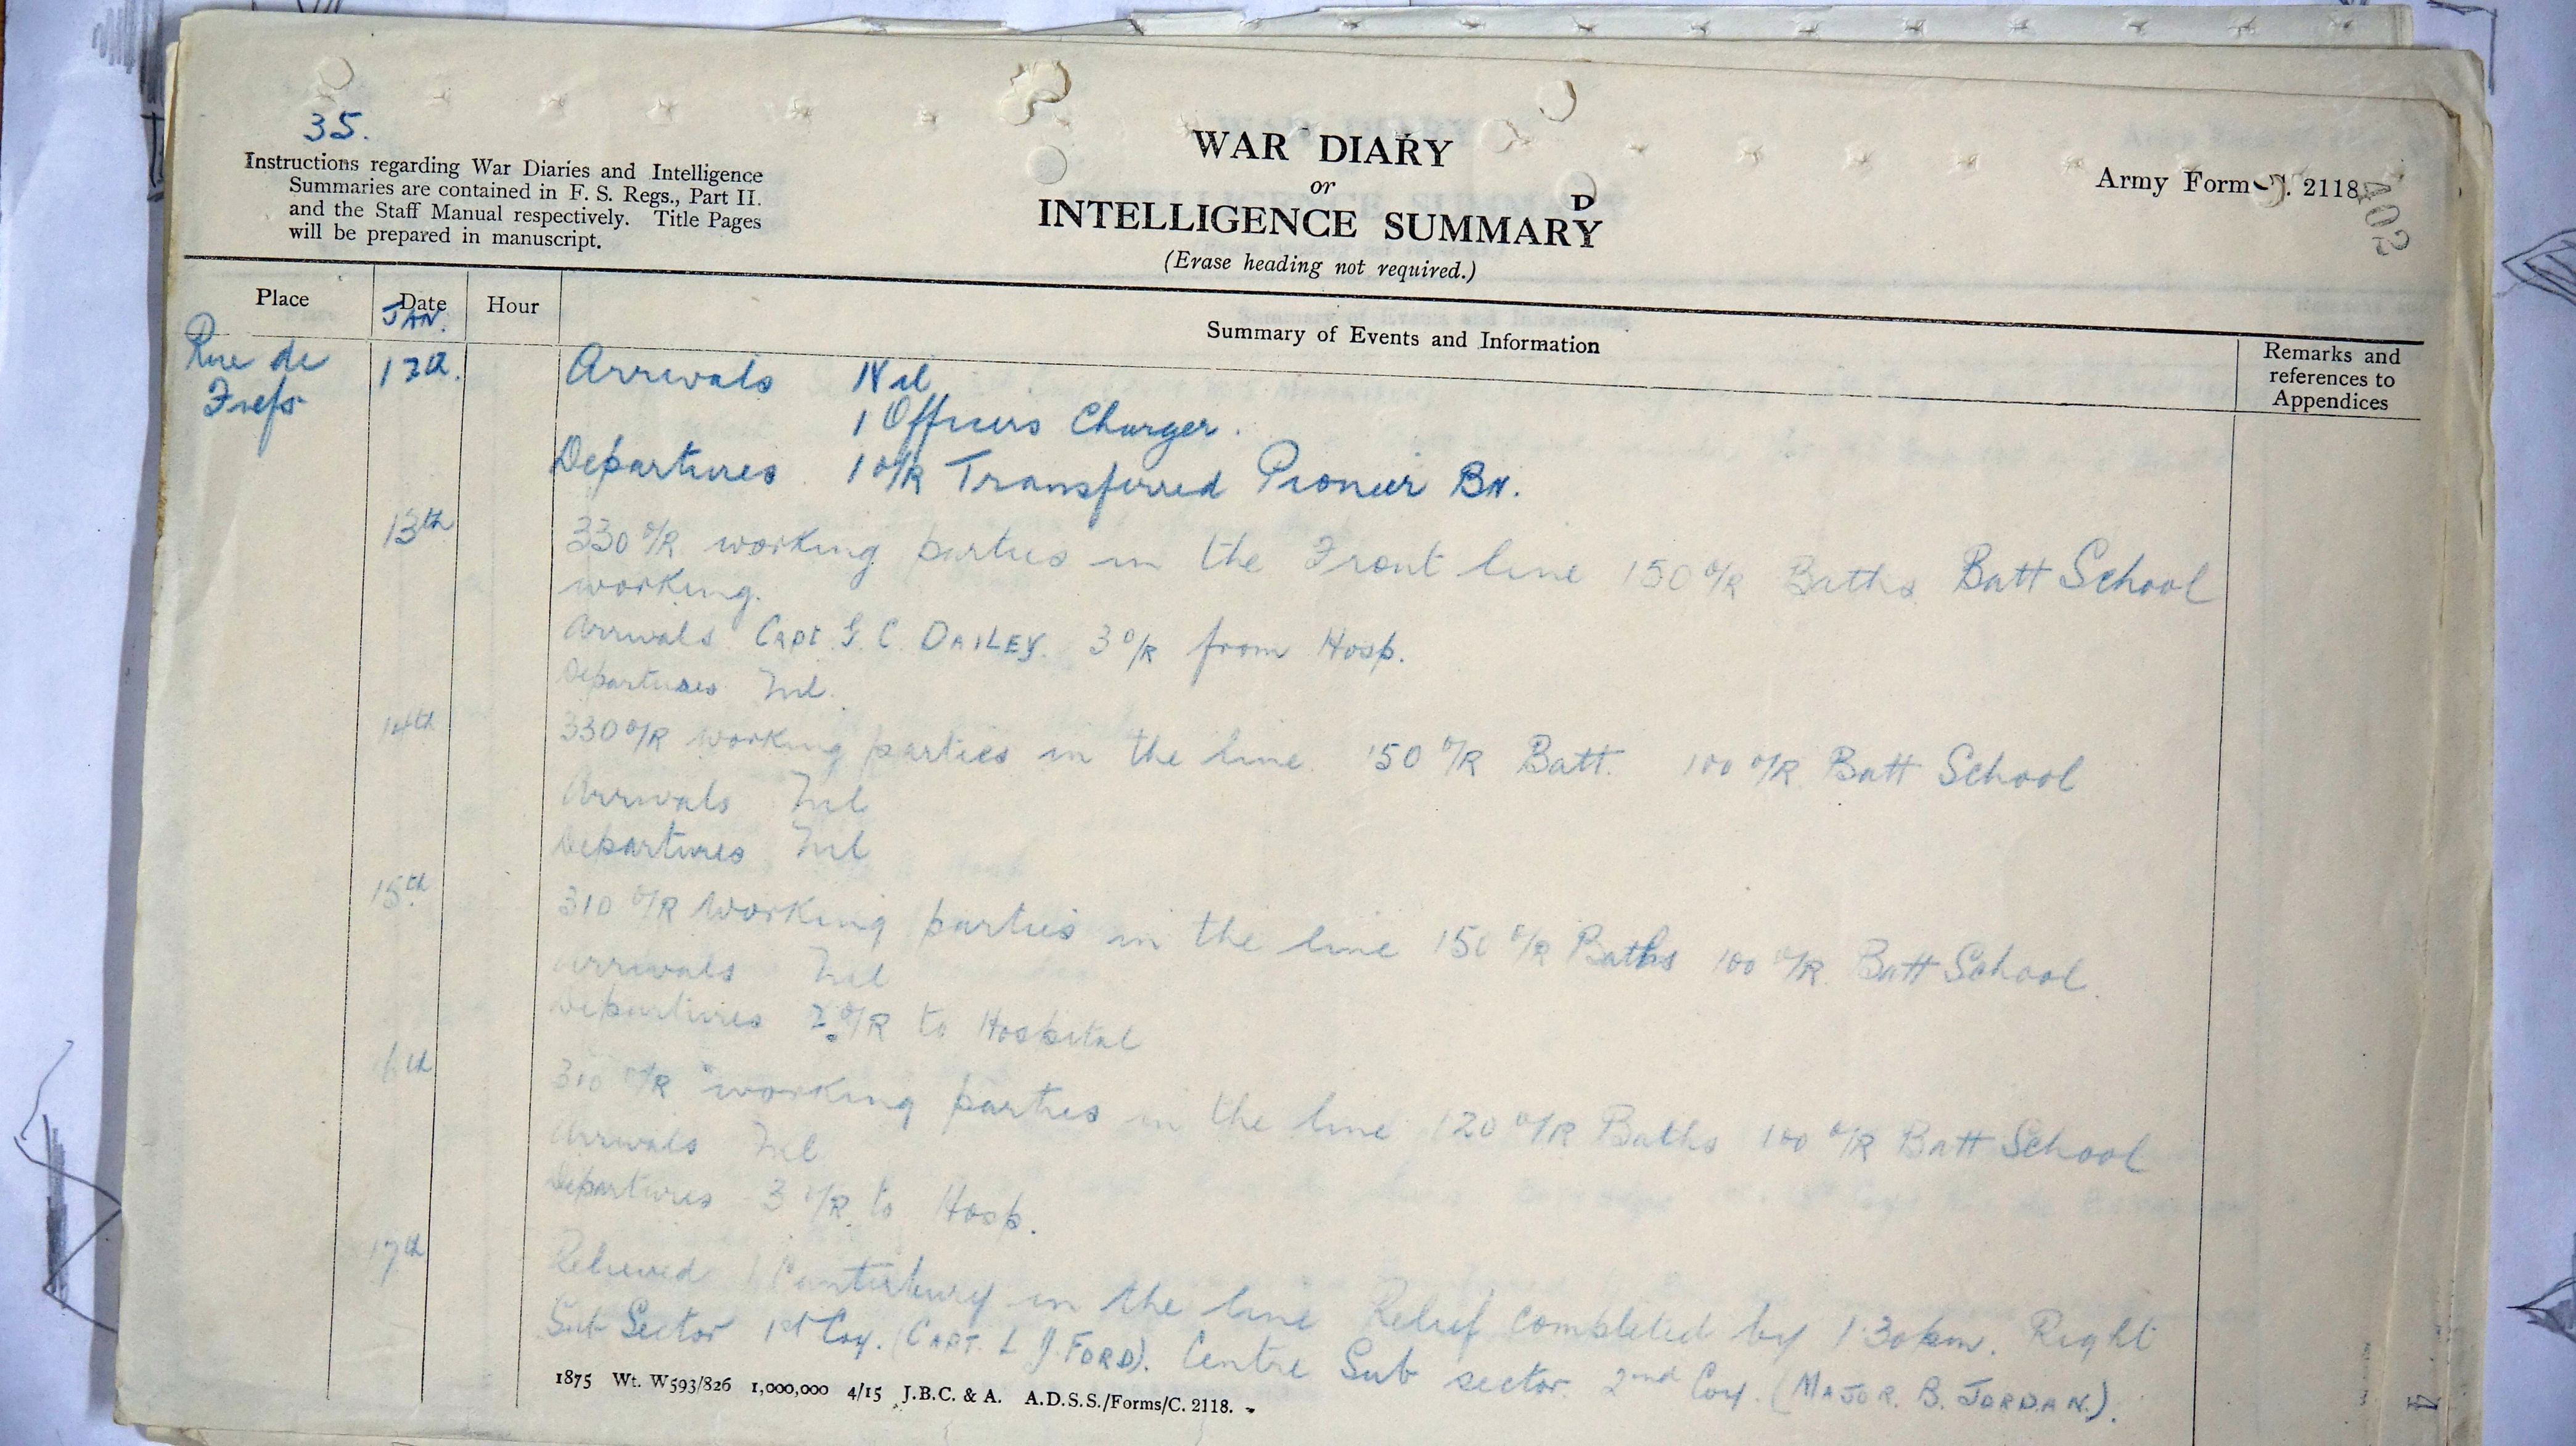 35.
Instructions regarding War Diaries and Intelligence
Summaries are contained in F. S. Regs., Part II.
and the Staff Manual respectively. Title Pages
will be prepared in manuscript.
WAR DIARY
or
INTELLIGENCE SUMMARY
(Erase heading not required.)
D
Army Form C. 2118
402
Place
Date
Hour
Summary of Events and Information
Remarks and
references to
Appendices
JAN.
Rue de
12th.
Arrivals Nil
1 Officers Charger.
Departures 1 O/R Transferred Pioneer BN.
13th
330 O/R working parties in the Front line 150 O/R Baths Batt School
working.
Arrivals Capt. G. C. DAILEY. 3 O/R from Hosp.
Departures Nil.
14th
330 O/R working parties in the line. 150 O/R Batt. 100 O/R Batt School
Arrivals Nil
Departures Nil
15th
310 O/R Working parties in the line 150 O/R Baths 100 O/R. Batt School.
Arrivals Nil
Departures 2 O/R to Hospital
16th
310 O/R working parties in the line 120 O/R Baths 100 O/R Batt School
Arrivals Nil
Departures 3 O/R. to Hosp.
17th
Relieved 1 Canterbury in the line Relief completed by 1.30pm. Right
Sub Sector 1st Coy. (CAPT. L J. FORD). Centre Sub sector. 2nd Coy. (MAJOR. B. JORDAN.).
1875 Wt. W593/826 1,000,000 4/15 J.B.C. & A. A.D.S.S./Forms/C. 2118.